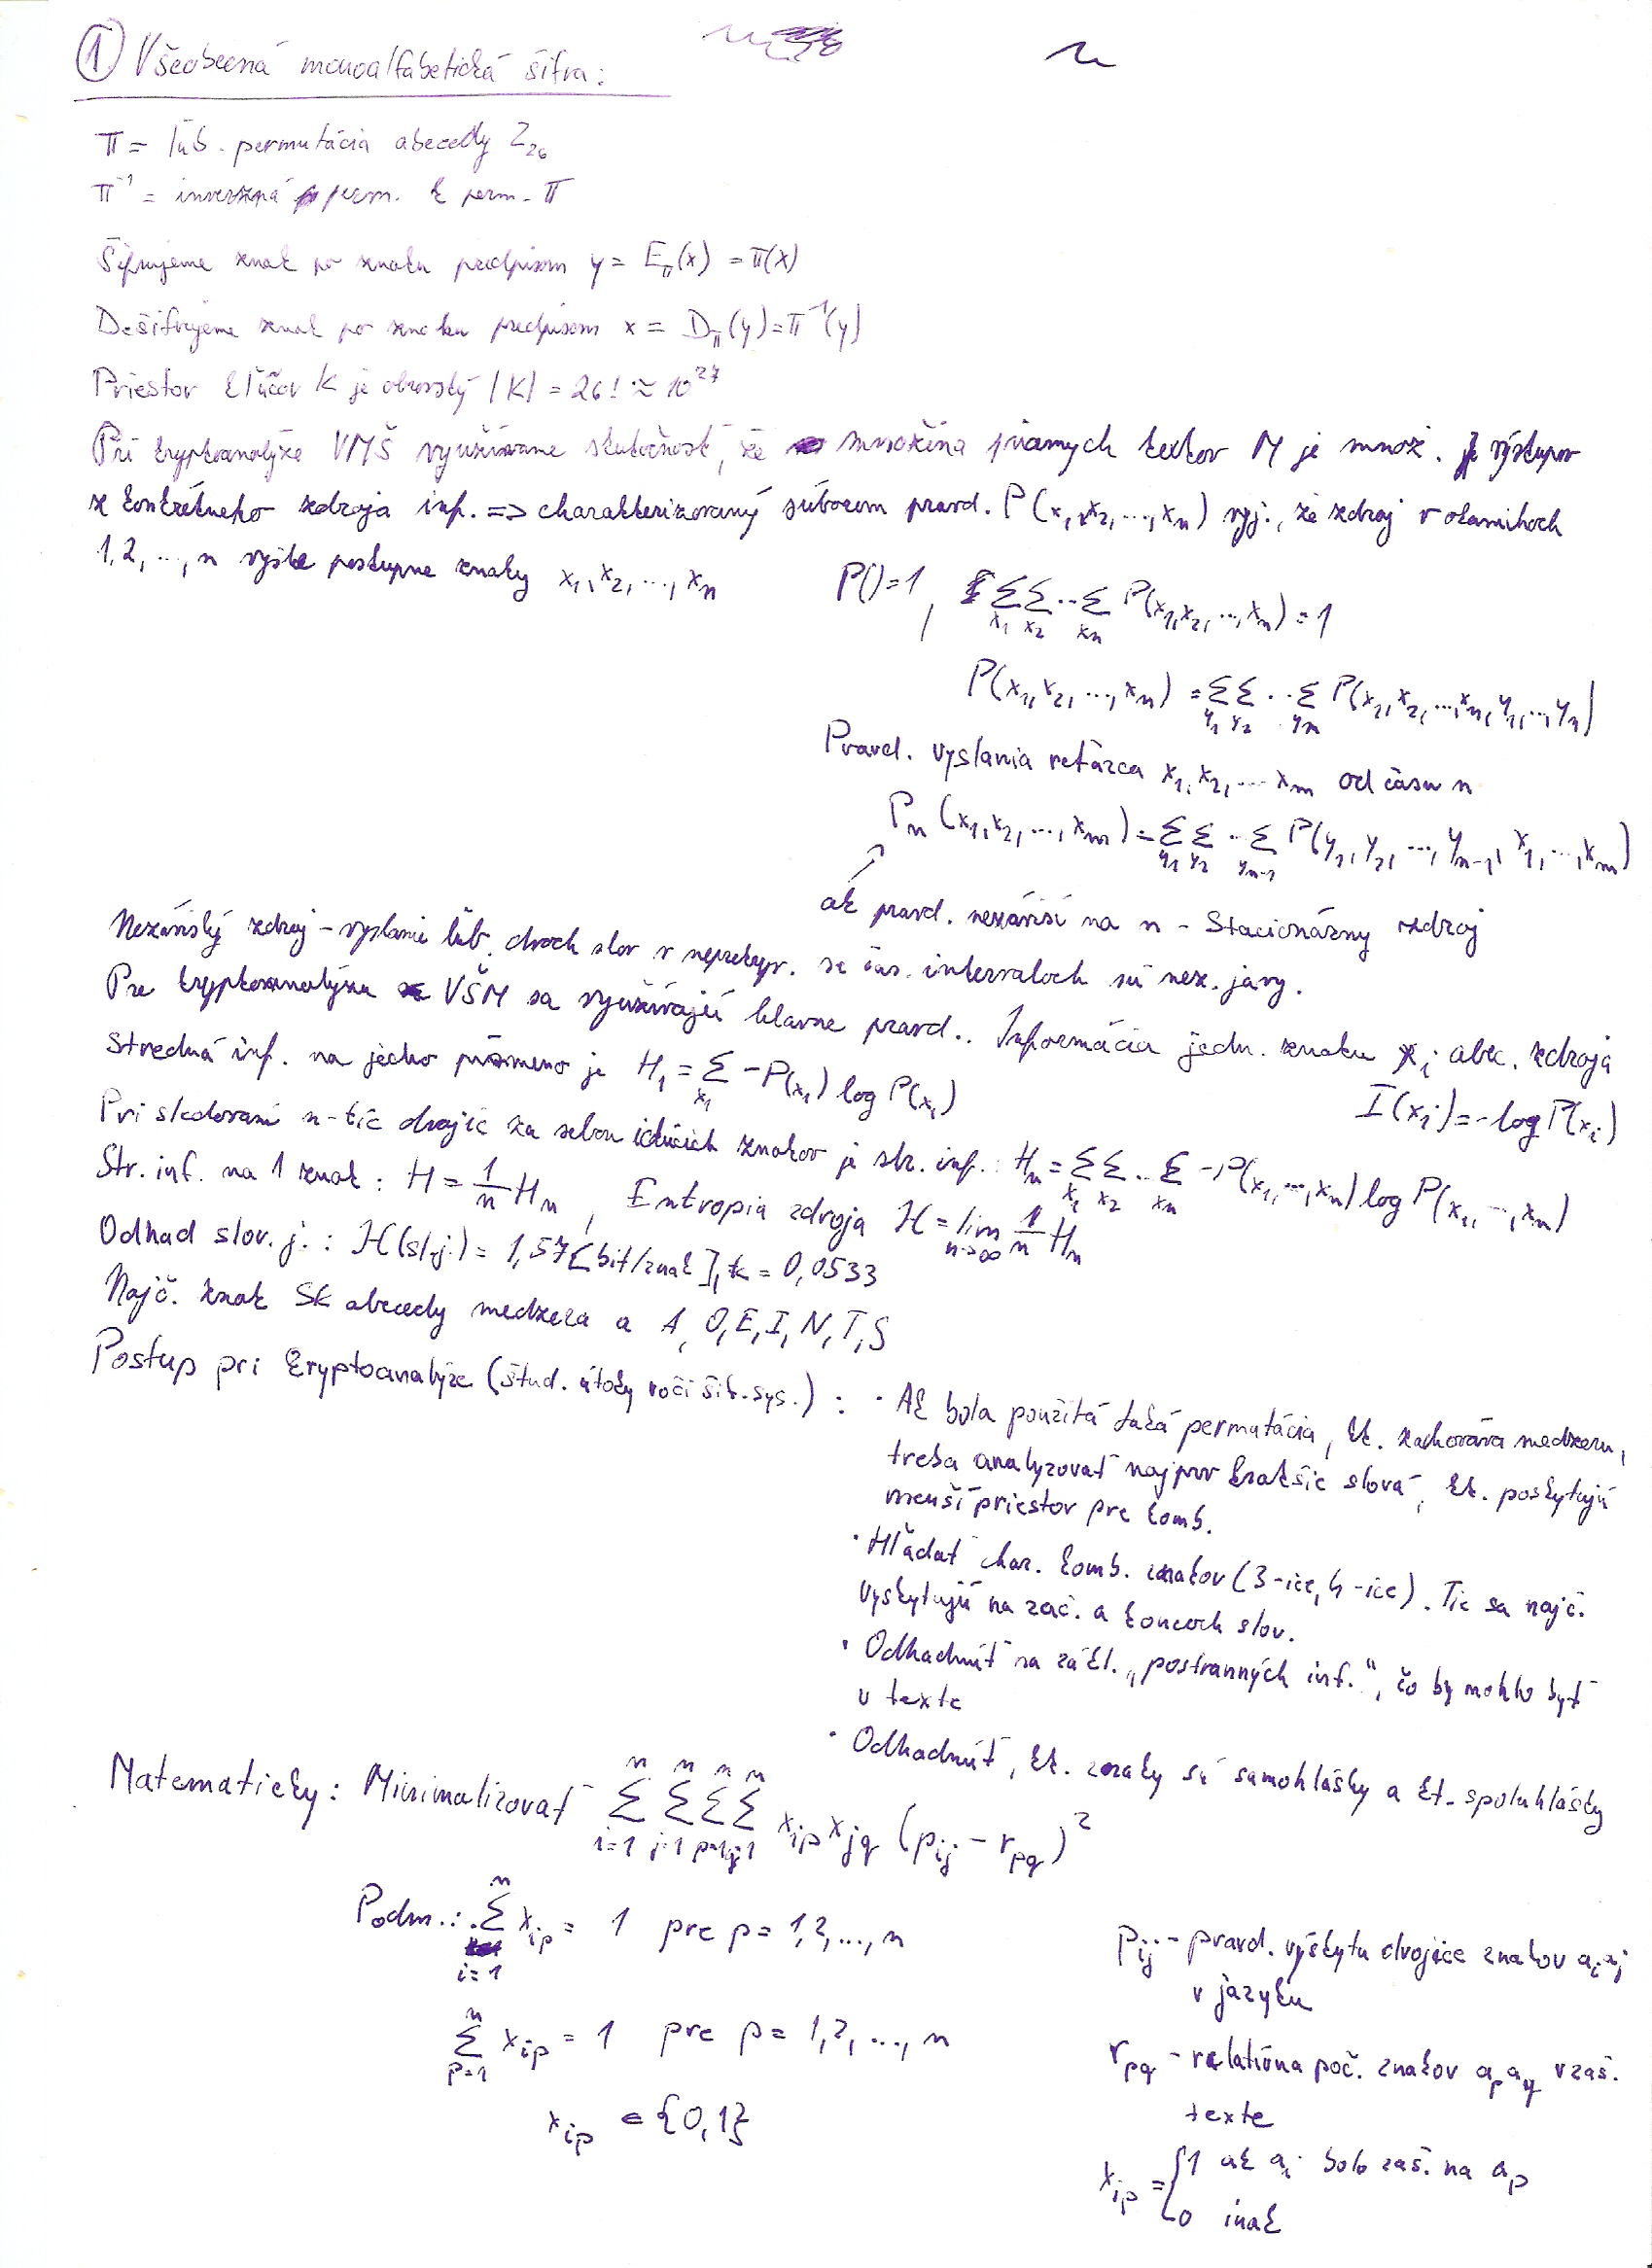 ① Všeobecná monoalfabetická šifra:
π = ľub. permutácia abecedy Z₂₆
π⁻¹ = inverzná perm. k perm. π
Šifrujeme znak po znaku predpisom y = E_π(x) = π(x)
Dešifrujeme znak po znaku predpisom x = D_π(y) = π⁻¹(y)
Priestor kľúčov K je obrovský |K| = 26! ≈ 10²⁷
Pri kryptoanalýze VMŠ využívame skutočnosť, že množina priamych textov M je množ. výstupov
z konkrétneho zdroja inf. => charakterizovaný súborom pravd. P(x₁,x₂,...,xₙ) vyj., že zdroj v okamihoch
1,2,...,n vyšle postupne znaky x₁,x₂,...,xₙ
P()=1, Σ_{x₁} Σ_{x₂} ... Σ_{xₙ} P(x₁,x₂,...,xₙ) = 1
P(x₁,x₂,...,xₙ) = Σ_{y₁} Σ_{y₂} ... Σ_{yₙ} P(x₁,x₂,...,xₙ,y₁,...,yₙ)
Pravd. vyslania reťazca x₁,x₂,...xₘ od času n
Pₙ(x₁,x₂,...,xₘ) = Σ_{y₁} Σ_{y₂} ... Σ_{yₙ₋₁} P(y₁,y₂,...,yₙ₋₁,x₁,...,xₘ)
ak pravd. nezávisí na n - Stacionárny zdroj
Nezávislý zdroj - vyslanie ľub. dvoch slov v neprekýv. sa čas. intervaloch sú nez. javy.
Pre kryptoanalýzu VŠM sa využívajú hlavne pravd.. Informácia jedn. znaku xᵢ abc. zdroja
I(xᵢ) = -log P(xᵢ)
Stredná inf. na jedno písmeno je H₁ = Σ_{x₁} -P(x₁) log P(x₁)
Pri sledovaní n-tíc dvojíc za sebou idúcich znakov je str. inf.: Hₙ = Σ_{x₁} Σ_{x₂} ... Σ_{xₙ} -P(x₁,...,xₙ) log P(x₁,...,xₙ)
Str. inf. na 1 znak: H = 1/n Hₙ, Entropia zdroja H = lim_{n->∞} 1/n Hₙ
Odhad slov. j.: H(sl.j.) = 1,57 [bit/znak], k = 0,0533
Najč. znak SK abecedy medzera a A, O, E, I, N, T, S
Postup pri kryptoanalýze (štud. útoky voči šif. sys.):
· Ak bola použitá taká permutácia, kt. zachováva medzeru,
treba analyzovať najprv kratšie slová, kt. poskytujú
menší priestor pre komb.
· Hľadať char. komb. znakov (3-ice, 4-ice). Tie sa najč.
vyskytujú na zač. a koncoch slov.
· Odhadnúť na zákl. „postranných inf.“, čo by mohlo byť
v texte
· Odhadnúť, kt. znaky sú samohlásky a kt. spoluhlásky
Matematicky: Minimalizovať Σ_{i=1}^n Σ_{j=1}^n Σ_{p=1}^n Σ_{q=1}^n x_ip x_jq (p_ij - r_pq)²
Podm.: Σ_{i=1}^n x_ip = 1 pre p = 1,2,...,n
Σ_{p=1}^n x_ip = 1 pre p = 1,2,...,n
x_ip ∈ {0,1}
p_ij - pravd. výskytu dvojice znakov aᵢaⱼ
v jazyku
r_pq - relatívna poč. znakov a_p a_q v zaš.
texte
x_ip = { 1 ak aᵢ bolo zaš. na a_p
0 inak